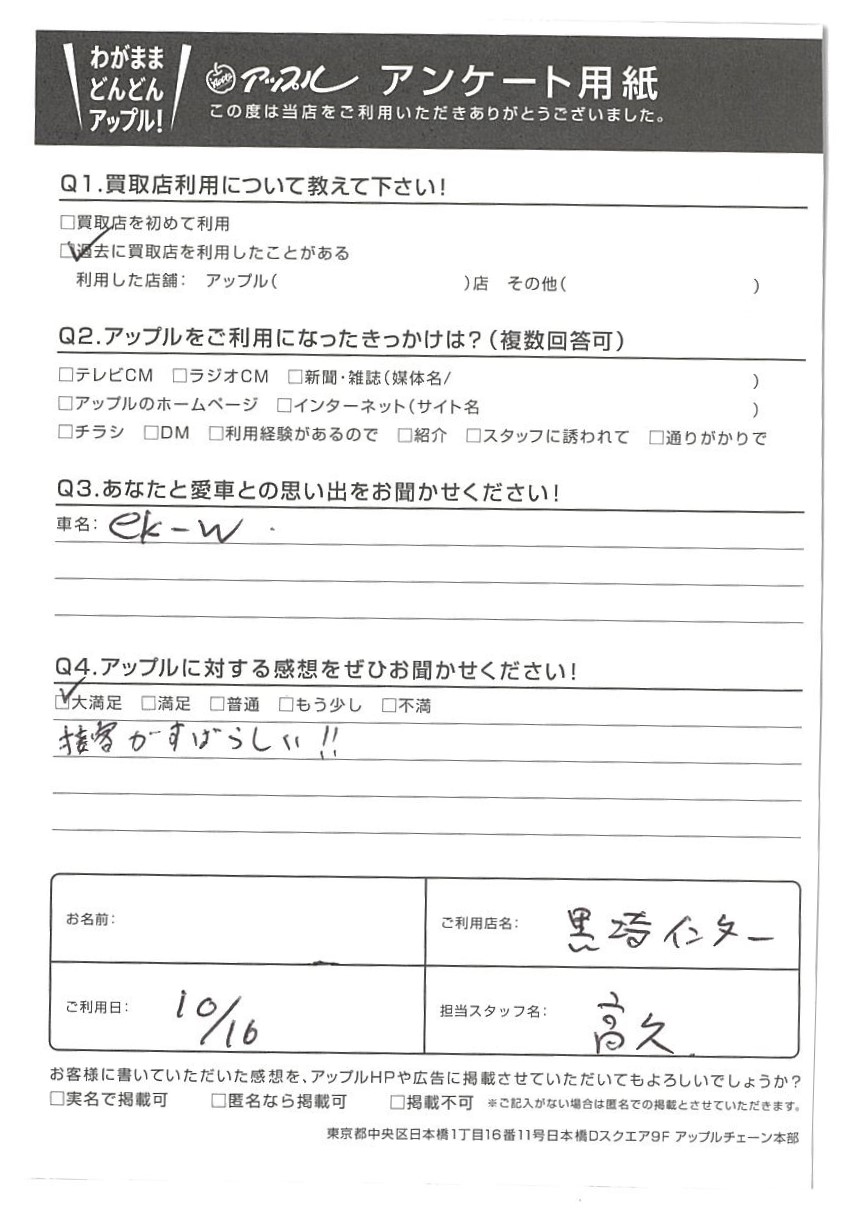 わがまま
どんどん
アップル!
Apple アップル アンケート用紙
この度は当店をご利用いただきありがとうございました。
Q1.買取店利用について教えて下さい!
□買取店を初めて利用
☑過去に買取店を利用したことがある
利用した店舗: アップル( )店 その他( )
Q2.アップルをご利用になったきっかけは?(複数回答可)
□テレビCM □ラジオCM □新聞・雑誌(媒体名/ )
□アップルのホームページ □インターネット(サイト名 )
□チラシ □DM □利用経験があるので □紹介 □スタッフに誘われて □通りがかりで
Q3.あなたと愛車との思い出をお聞かせください!
車名: ek-w
Q4.アップルに対する感想をぜひお聞かせください!
☑大満足 □満足 □普通 □もう少し □不満
接客がすばらしい!!
お名前:
ご利用店名: 黒埼インター
ご利用日: 10/16
担当スタッフ名: 高久
お客様に書いていただいた感想を、アップルHPや広告に掲載させていただいてもよろしいでしょうか?
□実名で掲載可 □匿名なら掲載可 □掲載不可 ※ご記入がない場合は匿名での掲載とさせていただきます。
東京都中央区日本橋1丁目16番11号日本橋Dスクエア9F アップルチェーン本部